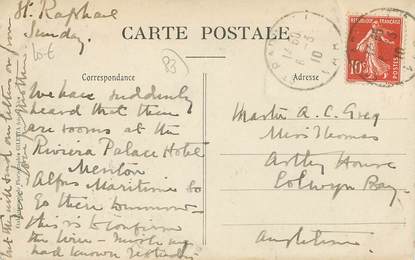 St. Raphael
Sunday.
CARTE POSTALE
Correspondance
Adresse
We have suddenly
heard that there
are rooms at the
Riviera Palace Hotel
Menton
Alpes Maritimes so
go there tomorrow
this is to confirm
the wire -
had known yesterday
but they will send our letters on from
Master A. C. Greg
Miss Thomas
Astley House
Colwyn Bay
Angleterre
10